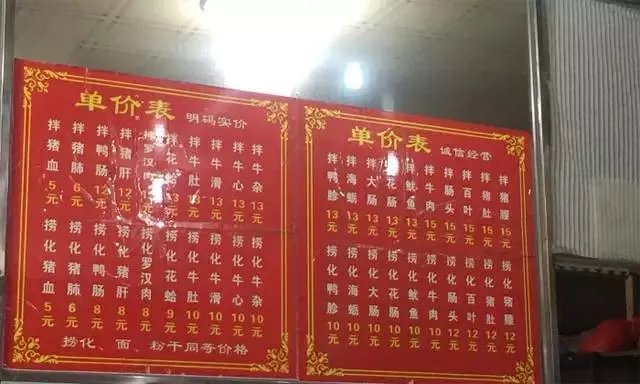 单价表 明码实价
拌猪血5元
拌猪肺6元
拌鸭肠12元
拌猪肝12元
拌罗汉肉
拌花蛤13元
拌牛肚13元
拌牛滑13元
拌牛心13元
拌牛杂13元
捞化猪血5元
捞化猪肺6元
捞化鸭肠8元
捞化猪肝8元
捞化罗汉肉8元
捞化花蛤9元
捞化牛肚10元
捞化牛滑10元
捞化牛心10元
捞化牛杂10元
捞化 面 粉干同等价格
单价表 诚信经营
拌鸭胗13元
拌海蛎13元
拌大肠13元
拌花肠13元
拌鱿鱼13元
拌牛肉15元
拌肠头15元
拌百叶15元
拌猪肚15元
拌猪腰15元
捞化鸭胗10元
捞化海蛎10元
捞化大肠10元
捞化花肠10元
捞化鱿鱼10元
捞化牛肉10元
捞化肠头12元
捞化百叶12元
捞化猪肚12元
捞化猪腰12元